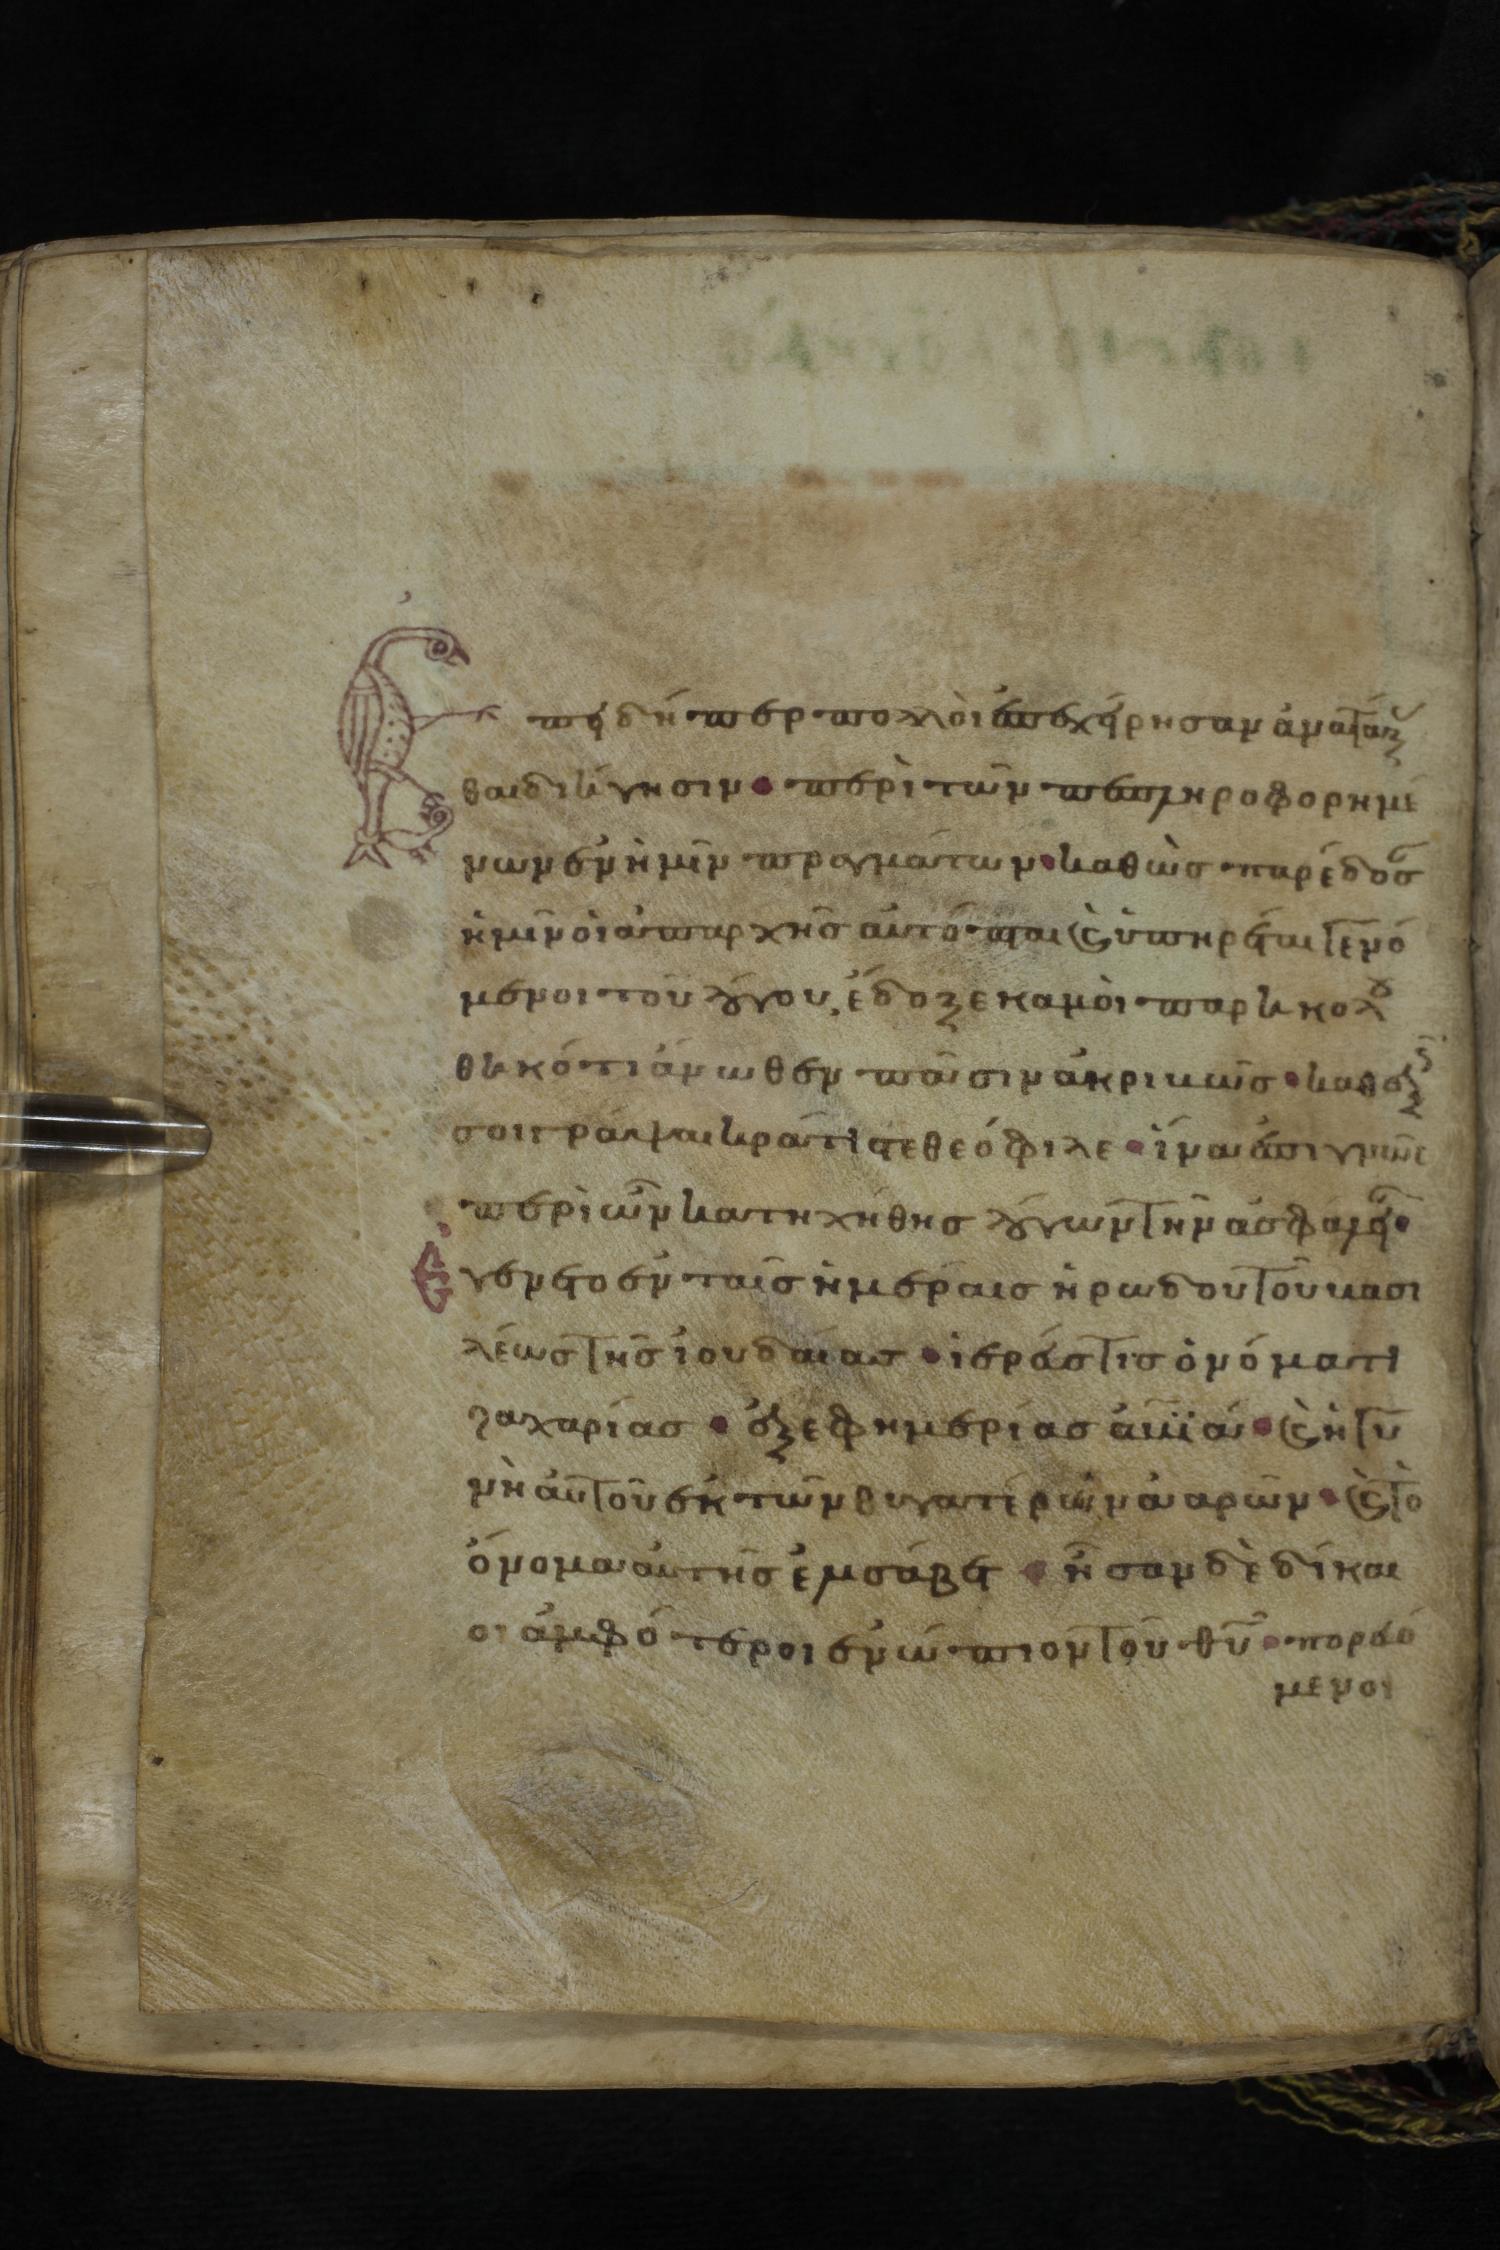 Ἐπειδήπερ πολλοὶ ἐπεχείρησαν ἀνατάξα
σθαι διήγησιν · περὶ τῶν πεπληροφορημέ
νων ἐν ἡμῖν πραγμάτων · καθὼς παρέδοσ
ἡμῖν οἱ ἀπαρχῆς αὐτόπται ϗ ὑπηρέται γενό
μενοι τοῦ λόγου, ἔδοξε καμοὶ παρηκολου
θηκότι ἄνωθεν πᾶσιν ἀκριβῶς · καθεξῆς
σοι γράψαι κράτιστε θεόφιλε · ἵνα ἐπιγνῶς
περὶ ὧν κατηχήθης λόγων τὴν ἀσφάλειαν ·
Ἐγένετο ἐν ταῖς ἡμέραις ἡρώδου τοῦ βασι
λέως τῆς ἰουδαίας · ἱερεύς τις ὀνόματι
ζαχαρίας · ἐξ ἐφημερίας ἀβϊά · ϗ ἡ γυ
νὴ αὐτοῦ ἐκ τῶν θυγατέρων ἀαρῶν · ϗ τὸ
ὄνομα αὐτῆς ἐλισάβετ · ἦσαν δὲ δίκαι
οι ἀμφότεροι ἐνώπιον τοῦ θυ · πορευό
μενοι